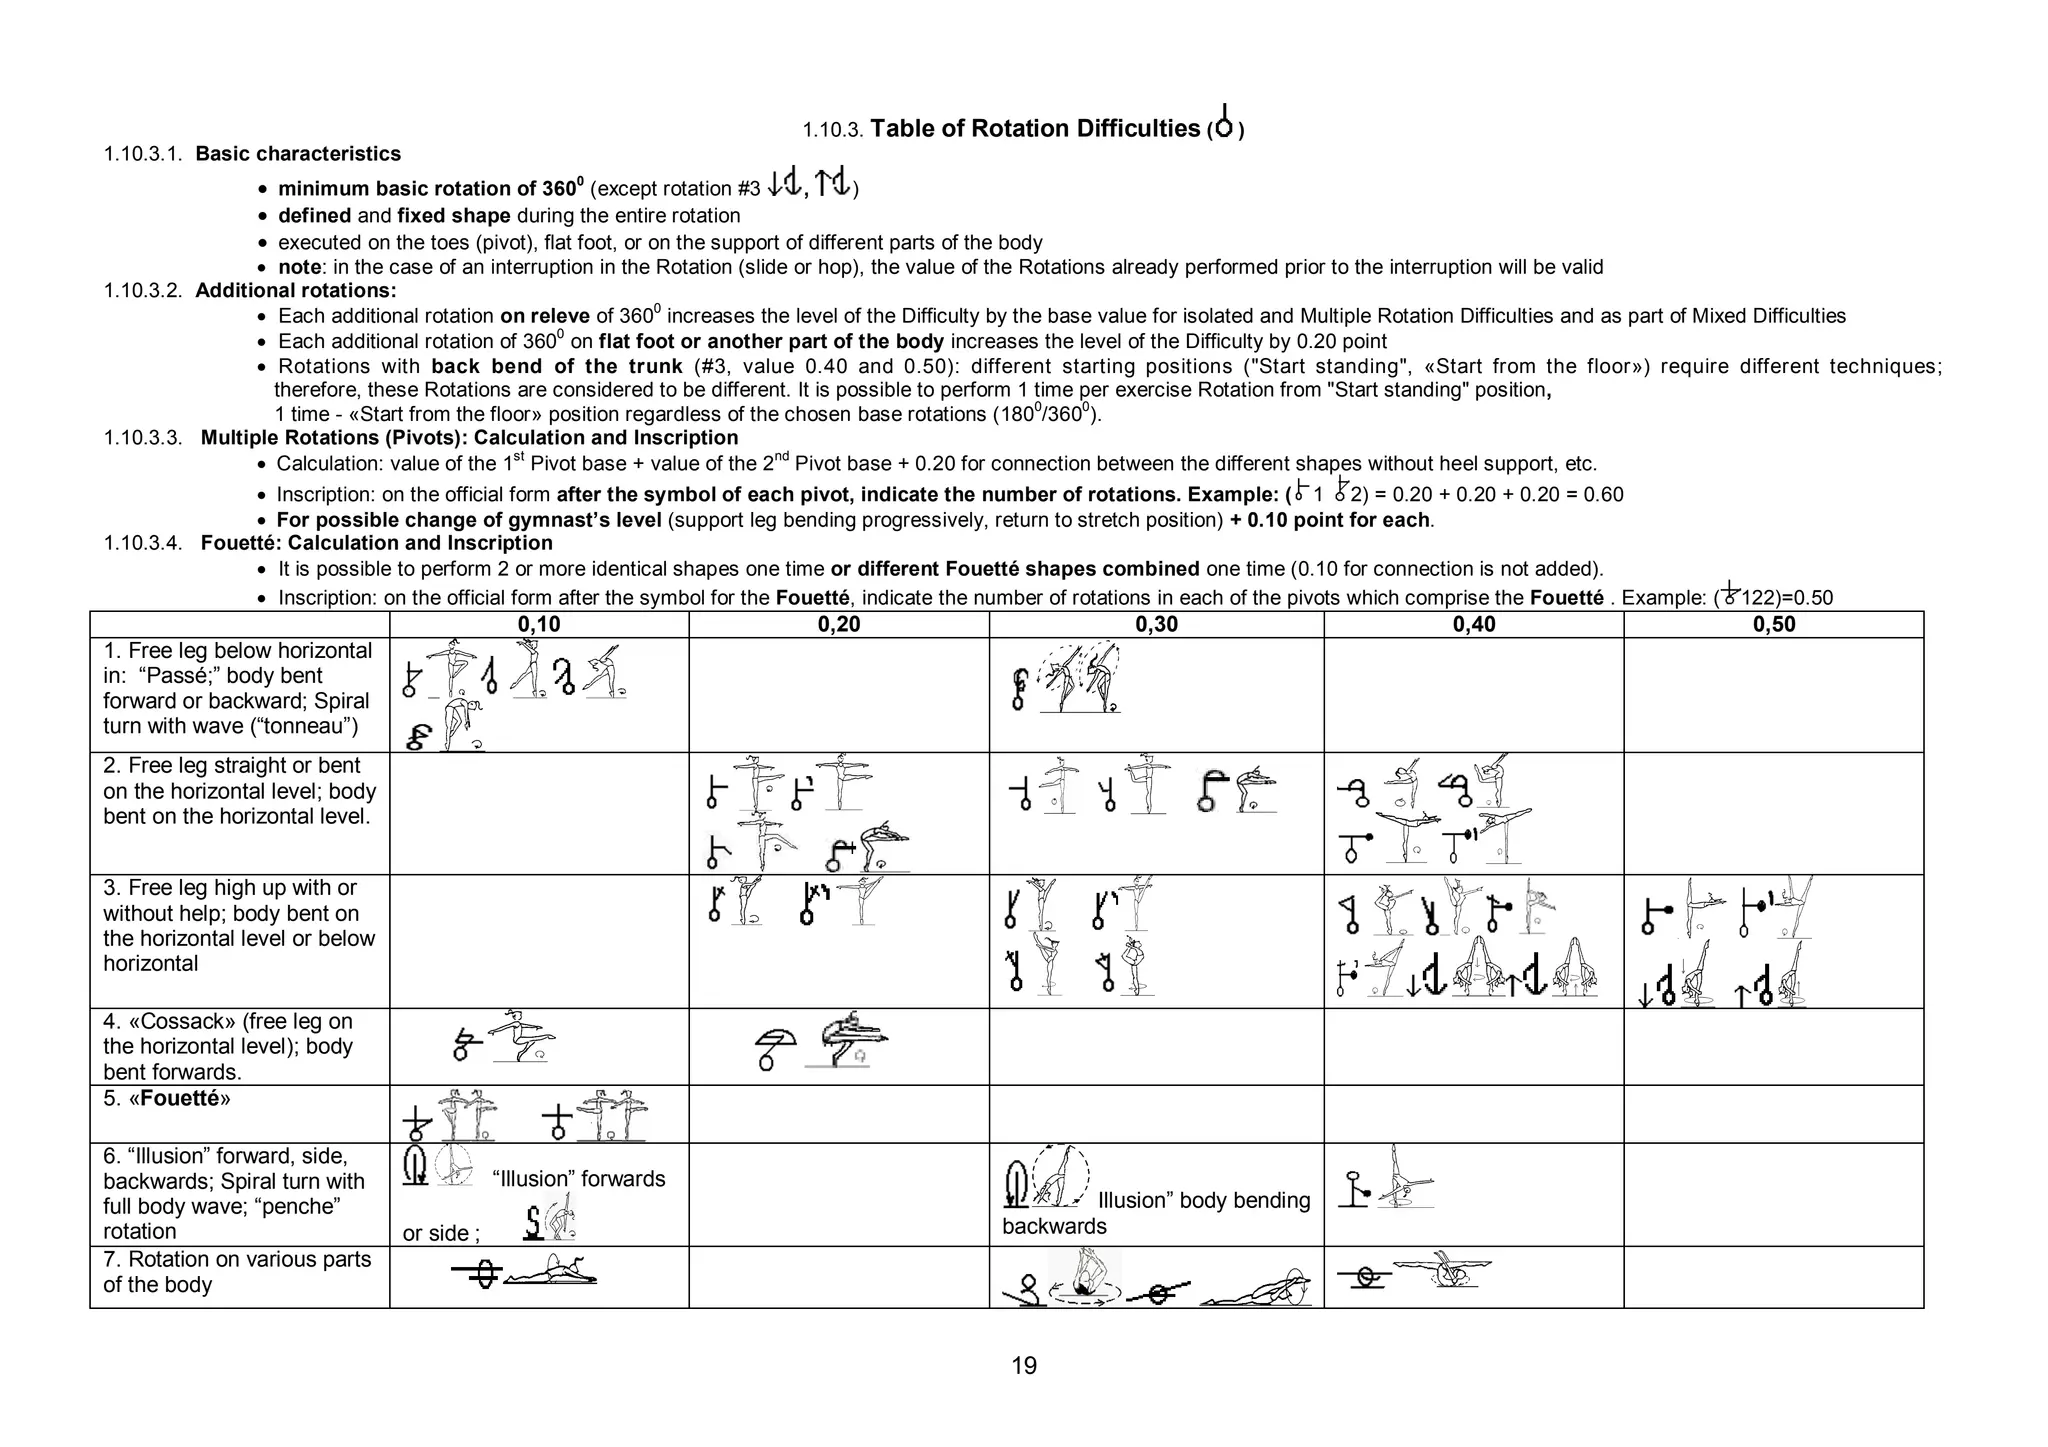 1.10.3. Table of Rotation Difficulties ( )
1.10.3.1. Basic characteristics
• minimum basic rotation of 360⁰ (except rotation #3 ↓ , ↑ )
• defined and fixed shape during the entire rotation
• executed on the toes (pivot), flat foot, or on the support of different parts of the body
• note: in the case of an interruption in the Rotation (slide or hop), the value of the Rotations already performed prior to the interruption will be valid
1.10.3.2. Additional rotations:
• Each additional rotation on releve of 360⁰ increases the level of the Difficulty by the base value for isolated and Multiple Rotation Difficulties and as part of Mixed Difficulties
• Each additional rotation of 360⁰ on flat foot or another part of the body increases the level of the Difficulty by 0.20 point
• Rotations with back bend of the trunk (#3, value 0.40 and 0.50): different starting positions ("Start standing", «Start from the floor») require different techniques;
therefore, these Rotations are considered to be different. It is possible to perform 1 time per exercise Rotation from "Start standing" position,
1 time - «Start from the floor» position regardless of the chosen base rotations (180⁰/360⁰).
1.10.3.3. Multiple Rotations (Pivots): Calculation and Inscription
• Calculation: value of the 1st Pivot base + value of the 2nd Pivot base + 0.20 for connection between the different shapes without heel support, etc.
• Inscription: on the official form after the symbol of each pivot, indicate the number of rotations. Example: ( 1 2) = 0.20 + 0.20 + 0.20 = 0.60
• For possible change of gymnast’s level (support leg bending progressively, return to stretch position) + 0.10 point for each.
1.10.3.4. Fouetté: Calculation and Inscription
• It is possible to perform 2 or more identical shapes one time or different Fouetté shapes combined one time (0.10 for connection is not added).
• Inscription: on the official form after the symbol for the Fouetté, indicate the number of rotations in each of the pivots which comprise the Fouetté . Example: ( 122)=0.50
0,10 0,20 0,30 0,40 0,50
1. Free leg below horizontal
in: “Passé;” body bent
forward or backward; Spiral
turn with wave (“tonneau”)
2. Free leg straight or bent
on the horizontal level; body
bent on the horizontal level.
3. Free leg high up with or
without help; body bent on
the horizontal level or below
horizontal
4. «Cossack» (free leg on
the horizontal level); body
bent forwards.
5. «Fouetté»
6. “Illusion” forward, side,
backwards; Spiral turn with
full body wave; “penche”
rotation
“Illusion” forwards
or side ;
Illusion” body bending
backwards
7. Rotation on various parts
of the body
19